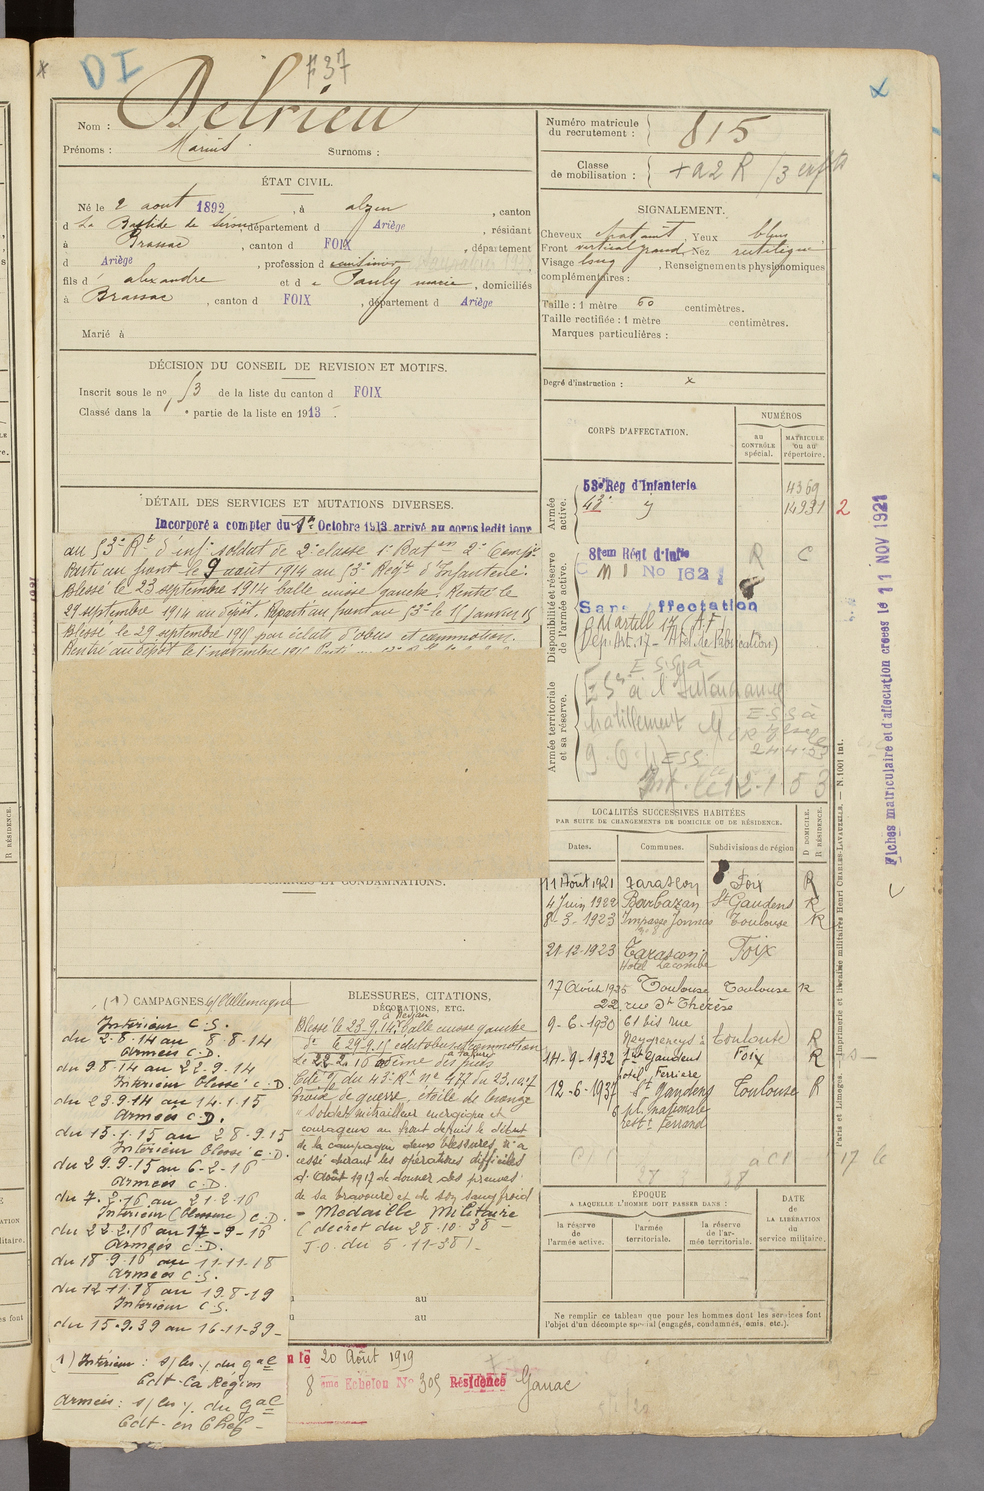 DI
F 37
Nom : Delrieu
Prénoms : Marius Surnoms :
Numéro matricule du recrutement : 815
Classe de mobilisation : + A2 R / 3 enfts
ÉTAT CIVIL.
Né le 2 aout 1892, à alzen, canton
d La Bastide de Sérou département d Ariège, résidant
à Brassac, canton d FOIX, département
d Ariège, profession d
fils d alexandre et d e Pauly marie, domiciliés
à Brassac, canton d FOIX, département d Ariège
Marié à
SIGNALEMENT.
Cheveux chatains, Yeux bleus
Front vertical grand, Nez rectiligne
Visage long, Renseignements physionomiques
complémentaires :
Taille : 1 mètre 60 centimètres.
Taille rectifiée : 1 mètre centimètres.
Marques particulières :
Degré d'instruction : x
DÉCISION DU CONSEIL DE REVISION ET MOTIFS.
Inscrit sous le no 53 de la liste du canton d FOIX
Classé dans la 1e partie de la liste en 1913
CORPS D'AFFECTATION.
NUMÉROS
au CONTRÔLE spécial.
MATRICULE ou au répertoire.
Armée active.
53e Rég d'Infanterie 4369
43e 14931 2
Disponibilité et réserve de l'armée active.
81em Régt d'Infie R C
No 162
Sans affectation
Armée territoriale et sa réserve.
E.S.S à
9.6.
E.S.S à
24.4.
le 12.1.53
DÉTAIL DES SERVICES ET MUTATIONS DIVERSES.
Incorporé a compter du 1er Octobre 1913 arrivé au corps ledit jour
au 53e Rt d'inf. soldat de 2e classe 1er Baton 2e Compie
Parti au front le 9 août 1914 au 53e Regt d'Infanterie.
Blessé le 23 septembre 1914 balle cuisse gauche. Rentré le
29 septembre 1914 au dépôt. Reparti au front au 53e le 15 janvier 15
Blessé le 29 septembre 1915 par éclats d'obus et commotion.
Rentré au dépôt le 1er novembre 1915
ET CONDAMNATIONS.
LOCALITÉS SUCCESSIVES HABITÉES
PAR SUITE DE CHANGEMENTS DE DOMICILE OU DE RÉSIDENCE.
Dates. Communes. Subdivisions de région D DOMICILE. R RÉSIDENCE.
11 Août 1921 Tarascon Foix R
4 Juin 1922 Barbazan St Gaudens R
8-3-1923 Impasse Jonnas Toulouse R
21-12-1923 Tarascon Foix
Hotel Lacombe
17 Août 1925 Toulouse Toulouse R
22, rue Ste Thérèse
9-6-1930 61 bis rue
Negreneys à Toulouse R
14-9-1932 St Gaudens Foix R
hôtel Ferriere
12-6-1937 St Gaudens Toulouse R
6 pl. nationale
restt Ferrand
(1) CAMPAGNES c/ l'Allemagne
Intérieur C.S.
du 2-8-14 au 8-8-14
Armées C.D.
du 9-8-14 au 22-9-14
Intérieur Blessé C.D.
du 23-9-14 au 14-1-15
Armées C.D.
du 15-1-15 au 28-9-15
Intérieur Blessé C.D.
du 29-9-15 au 6-2-16
Armées C.D.
du 7-2-16 au 21-2-16
Intérieur (blessure) C.D.
du 22-2-16 au 17-9-16
Armées C.D.
du 18-9-16 au 11-11-18
Armées C.S.
du 12-11-18 au 19-8-19
Intérieur C.S.
du 15-9-39 au 16-11-39
1) Intérieur : s/les y. du gal
Cdt la Région
Armées : s/les y. du gal
Cdt en Chef
BLESSURES, CITATIONS, DÉCORATIONS, ETC.
Blessé le 23.9.14. balle cuisse gauche
do le 29.9.15 éclat obus et commotion
Cité O/ du 43e Rt no 477 du 23.10.17
Croix de guerre, étoile de bronze
"Soldat mitrailleur énergique et
courageux au front depuis le début
de la campagne, deux blessures, n'a
cessé durant les opérations difficiles
d'Août 1917 de donner des preuves
de sa bravoure et de son sang froid
= Médaille Militaire
(décret du 28-10-38
J.O. du 5-11-38)
au
au
ÉPOQUE
A LAQUELLE L'HOMME DOIT PASSER DANS :
la réserve de l'armée active.
l'armée territoriale.
la réserve de l'armée territoriale.
DATE de LA LIBÉRATION du service militaire.
Ne remplir ce tableau que pour les hommes dont les services font
l'objet d'un décompte spécial (engagés, condamnés, omis, etc.).
le 20 Août 1919
8 ème Echelon No 305 Résidence Ganac
Fiches matriculaire et d'affectation créées le 11 NOV 1921
Paris et Limoges. — Imprimerie et librairie militaires Henri CHARLES-LAVAUZELLE. — N. 1001 int.